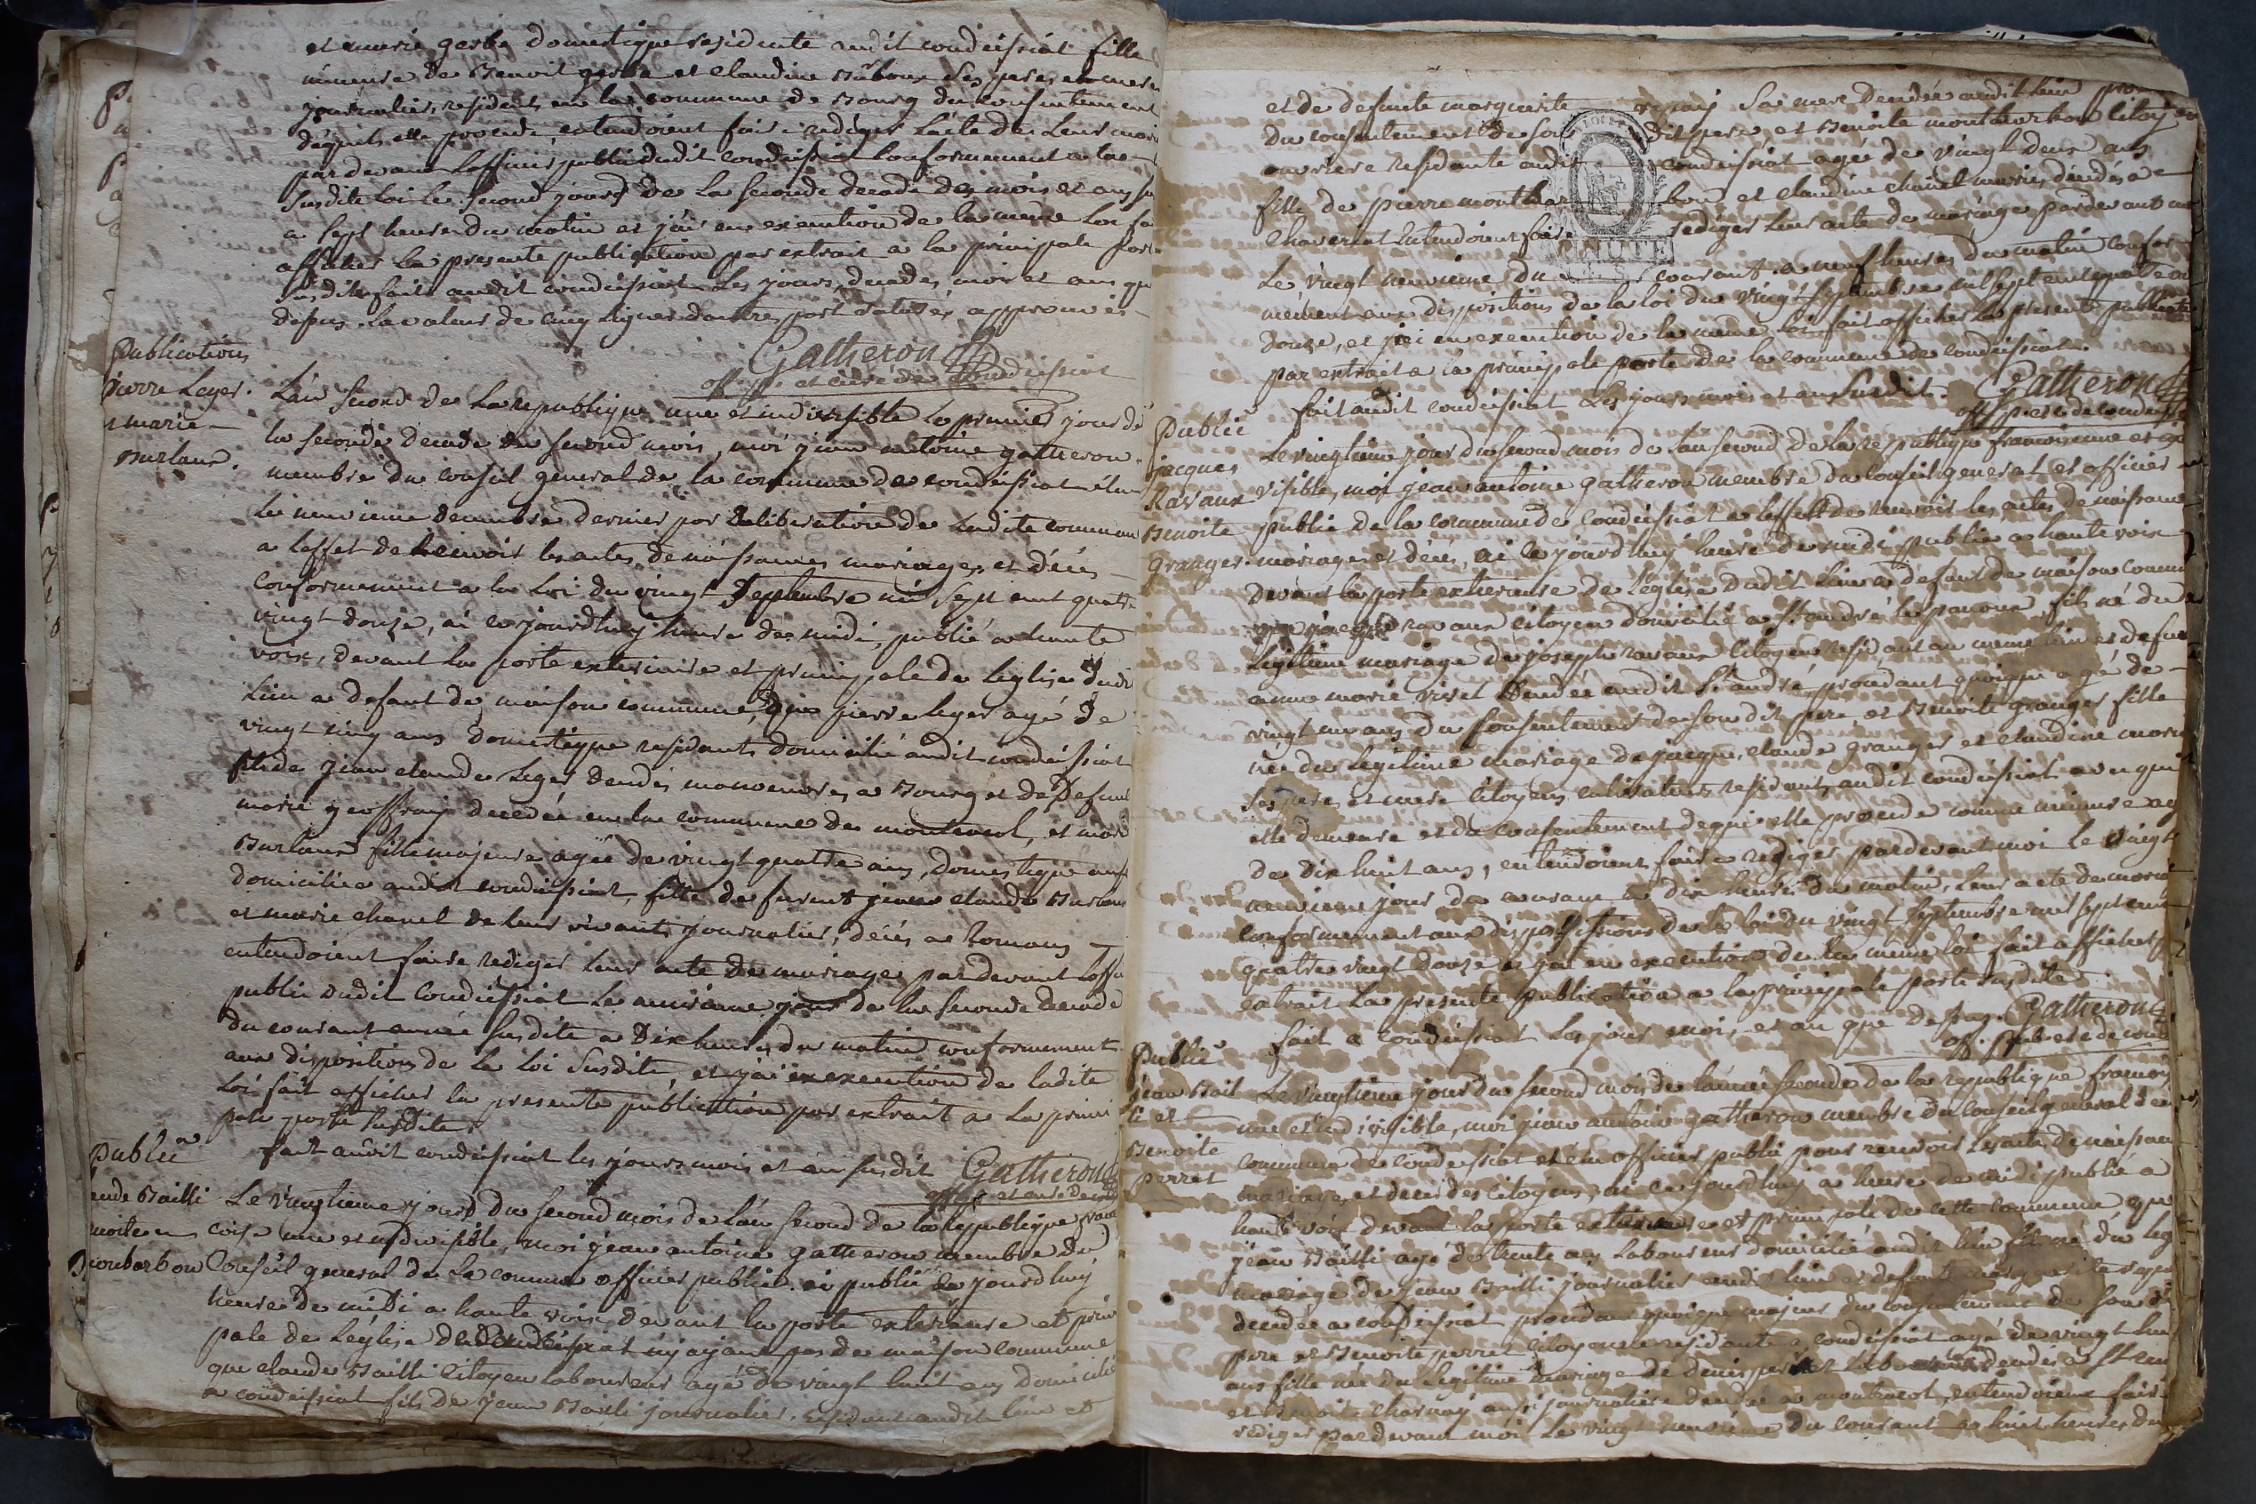 et marie gerbe domestique residente audit condeissiat fille
mineure de Benoit gerbe et Claudine ses pere et mere
journaliers residents en la commune de Bourg du consentement
desquels elle procede entendoient faire rediger l'acte de leur mari
pardevant l'officier public dudit condeissiat conformement a la
susdite loi le second jour de la seconde decade des mois et an su
a sept heures du matin et j'ai en execution de la meme loi fa
afficher la presente publication par extrait a la principale porte
susdite fait audit condeissiat les jours, decades, mois et an que
dessus. la valeur de cinq lignes d'autre part raturés approuvés
Gatheron
off. p. et curé de Condeissiat
Publication
pierre Leger
et marie
Burlaux.
L'an second de la republique une et indivisible le premier jour de
la seconde decade du second mois, moi jean antoine gatheron
membre du conseil general de la commune de condeissiat élu
le neuvieme decembre dernier par deliberation de ladite commune
a l'effet de recevoir les actes de naissances mariages et décès
conformement a la loi du vingt Septembre mil sept cent quatre
vingt douze, ai ce jourdhuy heure de midi, publié a haute
voix, devant la porte exterieure et principale de l'eglise dudit
lieu a defaut de maison commune, que pierre leger agé de
vingt cinq ans domestique residant domicilié audit condeissiat
fils de jean claude Leger decedé manouvrier a Bourg et de defunte
marie geoffray decedée en la commune de montracol, et marie
Burlaux fille majeure agée de vingt quatre ans, domestique aussi
domiciliée audit condeissiat, fille de furent jean claude Burlaux
et marie chanel de leurs vivants journaliers, décés a Romans
entendoient faire rediger leur acte de mariage pardevant l'offi
public dudit Condeissiat le neuvieme jour de la seconde decade
du courant année susdite a Dix heures du matin conformement
aux dispositions de la loi susdite, et j'ai en execution de ladite
Loi fait afficher la presente publication par extrait a la princi
pale porte susdite.
fait audit condeissiat les jours mois et an susdit Gatheron
Publion
aude Bailli
enoite m
onbarbon
Le vingtieme jour du second mois de l'an second de la republique fran
coise une et indivisible, moi jean antoine gatheron membre du
Conseil general de la commune officier public ai publié ce jourdhuy
heure de midi a haute voix devant la porte exterieure et princi
pale de L'église de Condeissiat n'y ayant pas de maison commune
que claude Bailli Citoyen laboureur agé de vingt huit ans domicilié
a condeissiat fils de jean Bailli journalier residant audit lieu et
et de defunte marguerite sa mere Decedée audit lieu pro
du consentement de son dit pere, et Benoite montbarbon citoyen
ouvriere residante audit condeissiat agée de vingt deux ans
fille de pierre montbarbon et claudine chanel mariés décédés a
Chaveriat entendoient faire rediger leur acte de mariage pardevant moi
Le vingt neuvieme du courant a neuf heures du matin confor
mément aux dispositions de la loi du vingt Septembre mil sept cent quatre vi
douze, et j'ai en execution de la meme loi fait afficher la presente publicati
par extrait a la principale porte de la commune de condeissiat.
fait audit condeissiat les jours mois et an susdit. Gatheron
Publié
jacques
Ravaux
Benoite
Granger
Le vingtieme jour du second mois de l'an second de la republique francoise une et in
visible, moi jean antoine gatheron membre du Conseil general et officier
public de la commune de condeissiat a l'effet de recevoir les actes de naissance
mariages et décès, ai ce jourdhuy heure de midi publié a haute voix
devant la porte exterieure de l'eglise dudit lieu a defaut de maison commu
que jacques ravaux citoyen domicilié a St andré le panoux fils né du
legitime mariage de joseph ravaux Citoyen residant au meme lieu et defun
anne marie Decedée audit St andré procedant quoique agé de
vingt un ans du consentement de son dit pere, et Benoite granger fille
née du legitime mariage de jacque claude granger et claudine mori
ses pere et mere citoyens cultivateurs residants audit condeissiat avec qui
elle demeure et du consentement de qui elle procede comme mineure ag
de dix huit ans, entendoient faire rediger pardevant moi le vingt
neuvieme jour du courant a dix heures du matin, leur acte de maria
conformement aux dispositions de la loi du vingt Septembre mil sept cent
quatre vingt douze et j'ai en execution de la meme loi fait afficher p
extrait la presente publication a la principale porte susdite
fait a condeissiat les jours mois et an que dessus. Gatheron
off. pub. et c. de cond
Publié
jean Bail
li et
Benoite
perret
Le vingtieme jour du second mois de l'année seconde de la republique francois
une et indivisible, moi jean antoine gatheron membre du Conseil general de
commune de condeissiat et élu officier public pour recevoir les actes de naissan
mariages et decès des citoyens, ai ce jourdhuy a heure de midi publié a
haute voix devant la porte exterieure et principale de cette commune que
jean Bailli agé de trente ans laboureur domicilié audit lieu fils né du leg
mariage de jean Bailli journalier audit lieu et defunte marguerite
decedée a condeissiat procedant quoique majeur du consentement de son d
pere et Benoite perret citoyenne residante a condeissiat agée de vingt hu
ans fille née du legitime mariage de denis perret laboureur decedé a
et Benoite charnay aussi journaliere decedée a montracol, entendoient faire
rediger pardevant moi le vingt neuvieme du courant a huit heures du